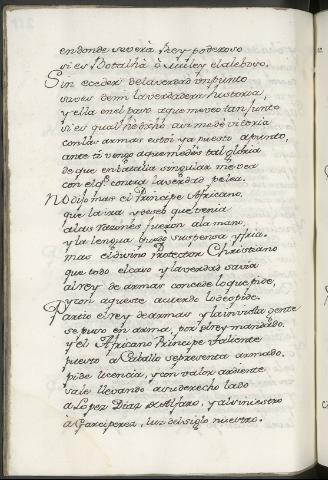 en donde se verà Rey poderoso
si es Botalhà ò Muley el alevoso.
Sin eceder de la verdad un punto
sirves de mi la verdadera historia,
y ella en el caso a que me veo tan junto
si es qual he dicho a mi me dè vitoria
con las armas estoi ya puesto a punto,
ante ti vengo a que me dès tal gloria
de que en batalla singular me vea
con el q.e contra la verdad pelea.
No dijo mas el Principe Africano,
que la ira y deseo que tenia
a las razones fueron a la mano,
y la lengua quedo suspensa y fria.
mas el divino Protector Christiano
que todo el caso y la verdad savia
al rey de armas concede lo que pide,
y con aqueste acuerdo lo despide.
Partio el rey de armas y la invicta gente
se puso en arma, por su rey mandado.
y el Africano Principe valiente
puesto a Caballo se presenta armado.
pide licencia, y con valor ardiente
sale llevando a su derecho lado
a Lopez Diaz de Alfaro, y al siniestro
à Garci perez, luz del siglo nuestro.